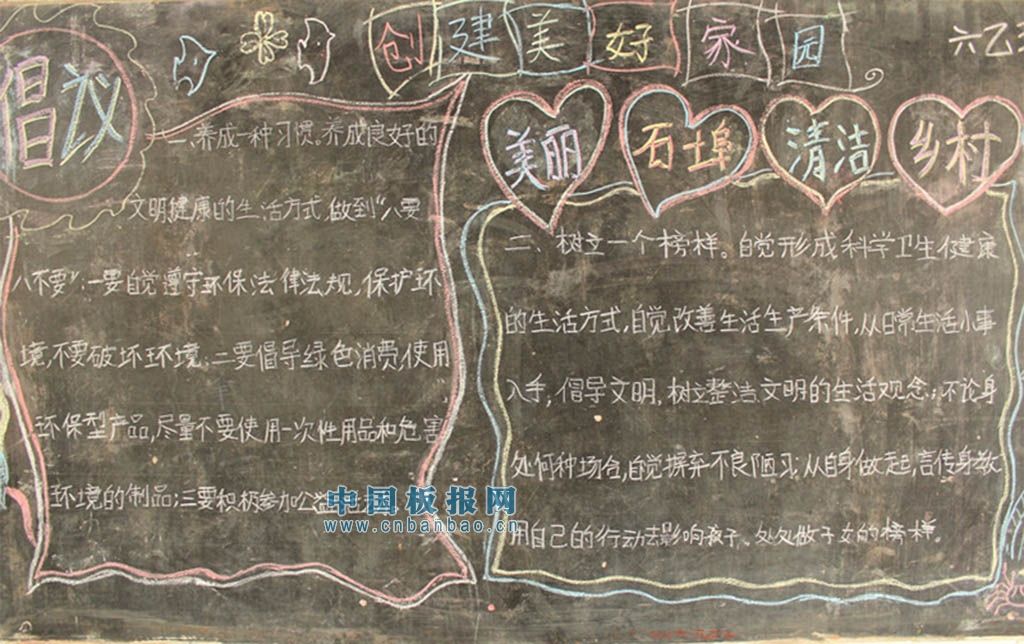 创建美好家园
六乙
倡议
一、养成一种习惯。养成良好的
文明健康的生活方式,做到“八要
八不要”:一要自觉遵守环保法律法规,保护环
境,不要破坏环境;二要倡导绿色消费,使用
环保型产品,尽量不要使用一次性用品和危害
环境的制品;三要积极参加公益
美丽 石埠 清洁 乡村
二、树立一个榜样。自觉形成科学卫生健康
的生活方式,自觉改善生活生产条件,从日常生活小事
入手,倡导文明,树立整洁文明的生活观念;不论身
处何种场合,自觉摒弃不良陋习;从自身做起,言传身教
用自己的行动去影响孩子、处处做子女的榜样。
中国板报网
www.cnbanbao.cn